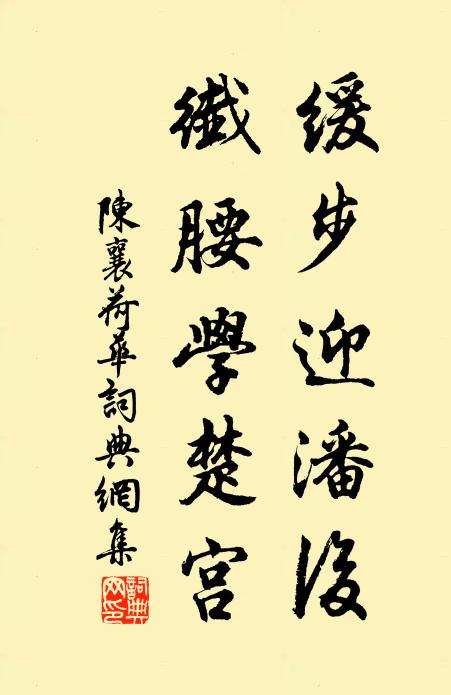 緩步迎潘後
纖腰學楚宮
陳襄荷華詞典網集
詞典網印